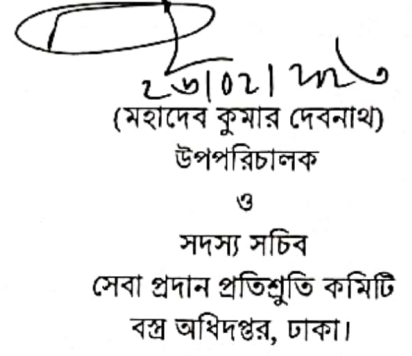 (মহাদেব কুমার দেবনাথ)
উপপরিচালক
ও
সদস্য সচিব
সেবা প্রদান প্রতিশ্রুতি কমিটি
বস্ত্র অধিদপ্তর, ঢাকা।